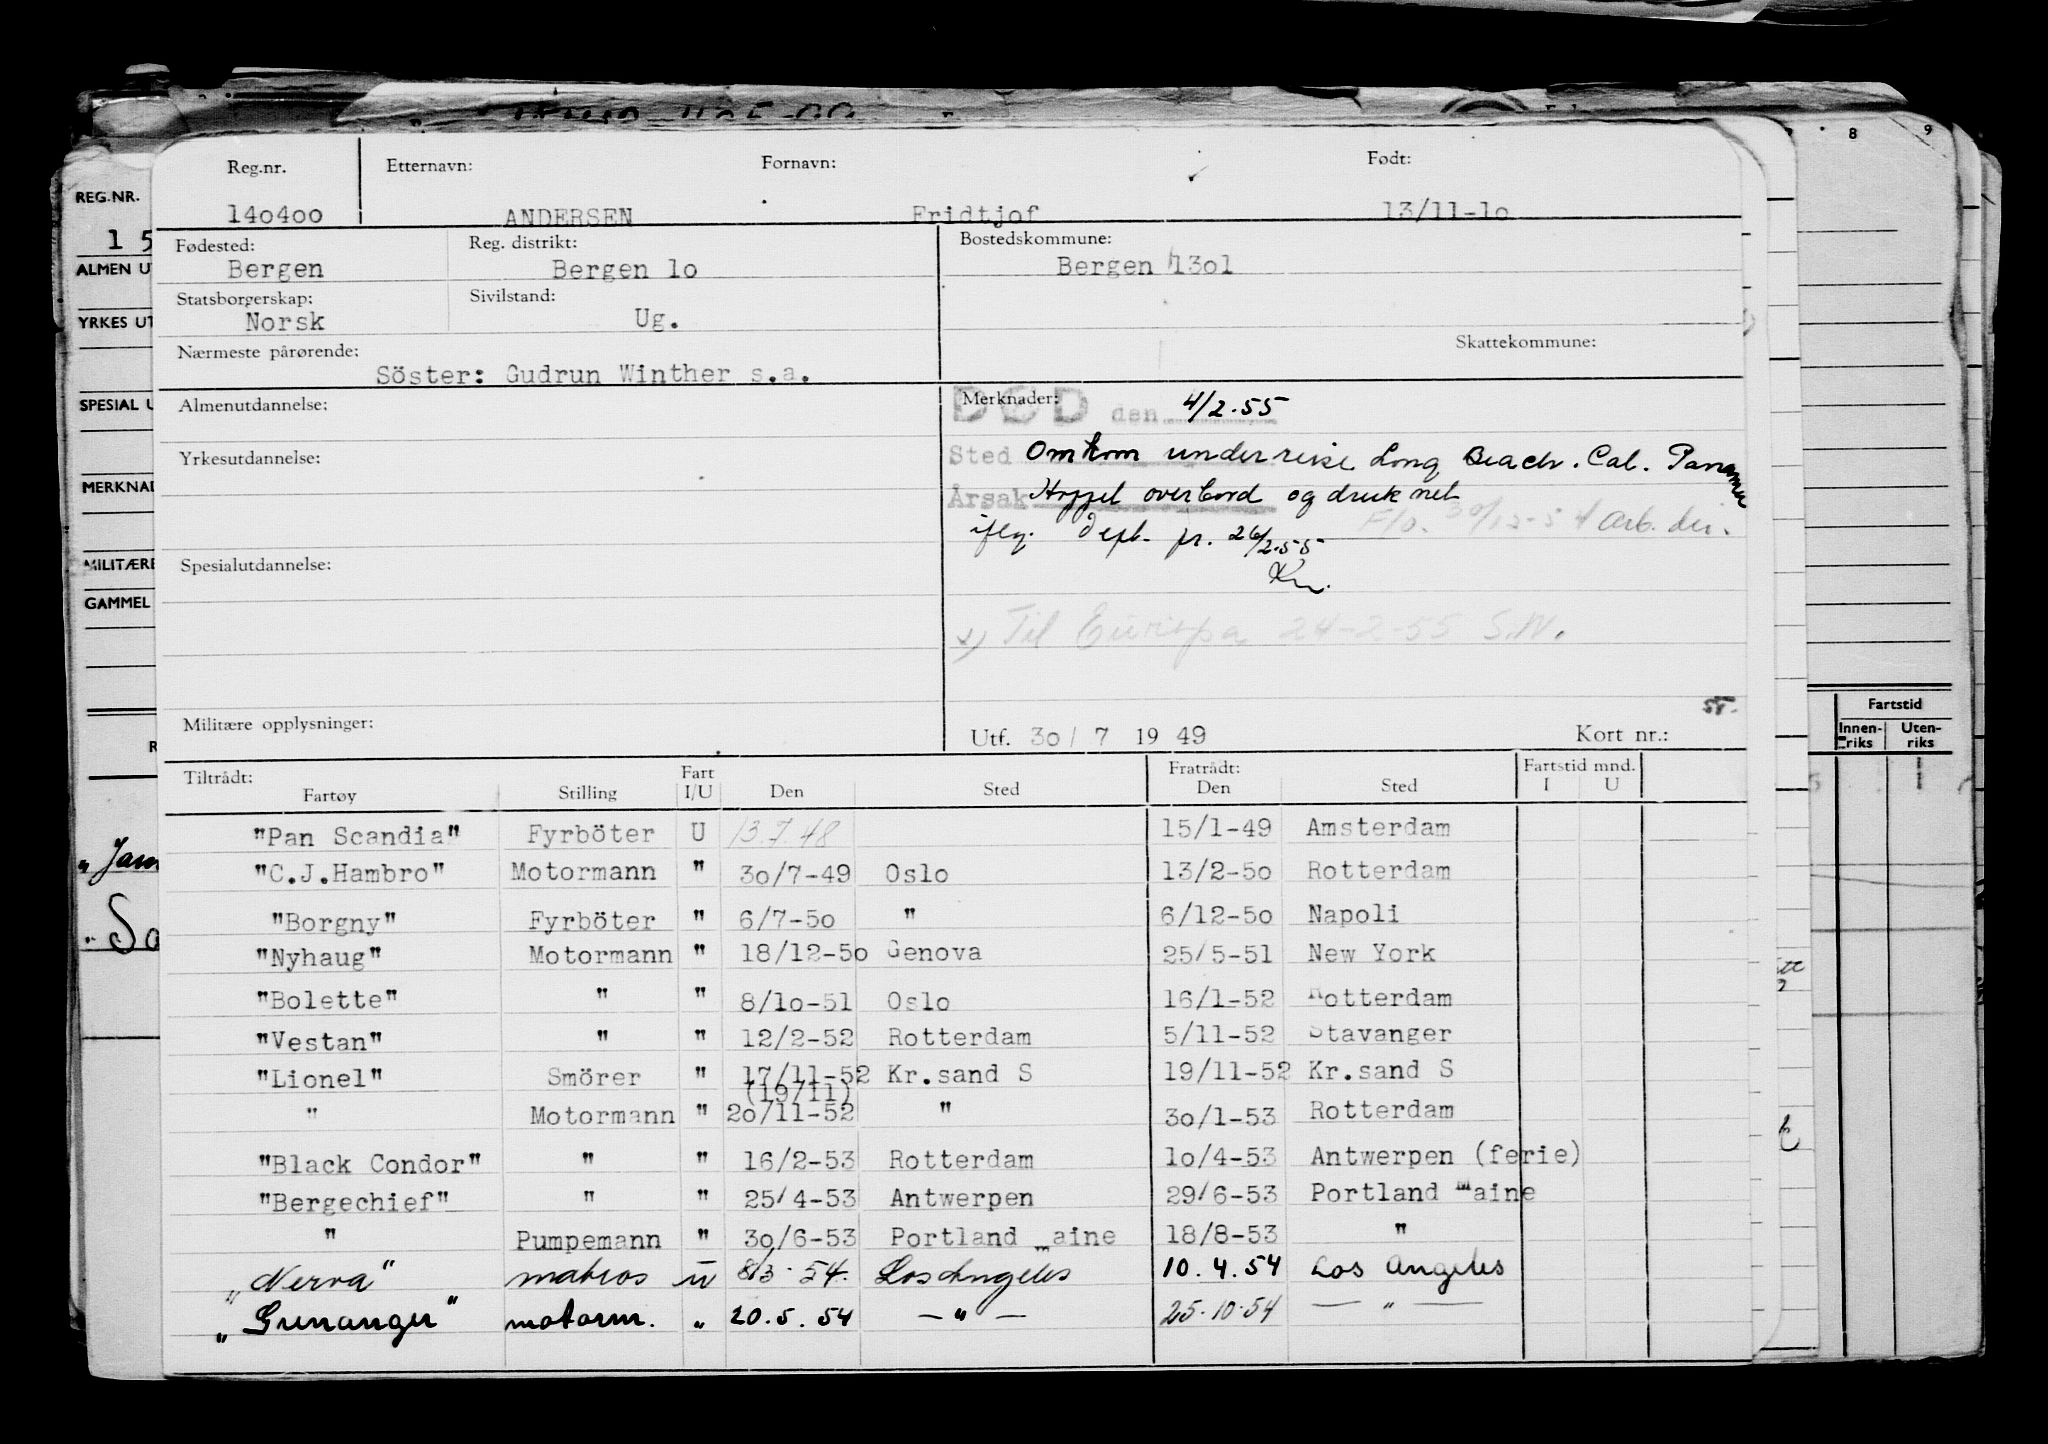 Reg.nr. Etternavn: Fornavn: Født:
140400 ANDERSEN Fridtjof 13/11-1o
Fødested: Reg. distrikt: Bostedskommune:
Bergen Bergen 1o Bergen 13o1
Statsborgerskap: Sivilstand:
Norsk Ug.
Skattekommune:
Nærmeste pårørende:
Söster: Gudrun Winther s.a.
Almenutdannelse:
Merknader:
DØD den 4/2.55
Yrkesutdannelse:
Sted Omkom under reise Long Beach. Cal. Panama
Årsak Hoppet overbord og druknet
F/o. 30/12-54 Arb. dir.
iflg. Dept. pr. 26/2.55
Spesialutdannelse:
x) Til Europa 24-2-55 S.W.
Militære opplysninger:
Utf. 3o / 7 19 49 Kort nr.:
Tiltrådt: Fartøy Stilling Fart I/U Den Sted Fratrådt: Den Sted Fartstid mnd. I U
"Pan Scandia" Fyrböter U 13.7.48 15/1-49 Amsterdam
"C.J.Hambro" Motormann " 3o/7-49 Oslo 13/2-5o Rotterdam
"Borgny" Fyrböter " 6/7-5o " 6/12-5o Napoli
"Nyhaug" Motormann " 18/12-5o Genova 25/5-51 New York
"Bolette" " " 8/1o-51 Oslo 16/1-52 Rotterdam
"Vestan" " " 12/2-52 Rotterdam 5/11-52 Stavanger
"Lionel" Smörer " 17/11-52 Kr.sand S 19/11-52 Kr.sand S
(19/11)
" Motormann " 2o/11-52 " 3o/1-53 Rotterdam
"Black Condor" " " 16/2-53 Rotterdam 1o/4-53 Antwerpen (ferie)
"Bergechief" " " 25/4-53 Antwerpen 29/6-53 Portland Maine
" Pumpemann " 3o/6-53 Portland Maine 18/8-53 "
„Nerva" matros U 8/3-54. Los Angeles 10.4.54 Los Angeles
„Grenanger" motorm. „ 20.5.54 — " — 25.10.54 — " —
REG.NR.
1 5
ALMEN U
YRKES UT
SPESIAL U
MERKNAD
MILITÆRE
GAMMEL
8 9
Fartstid
Innen-riks Uten-riks